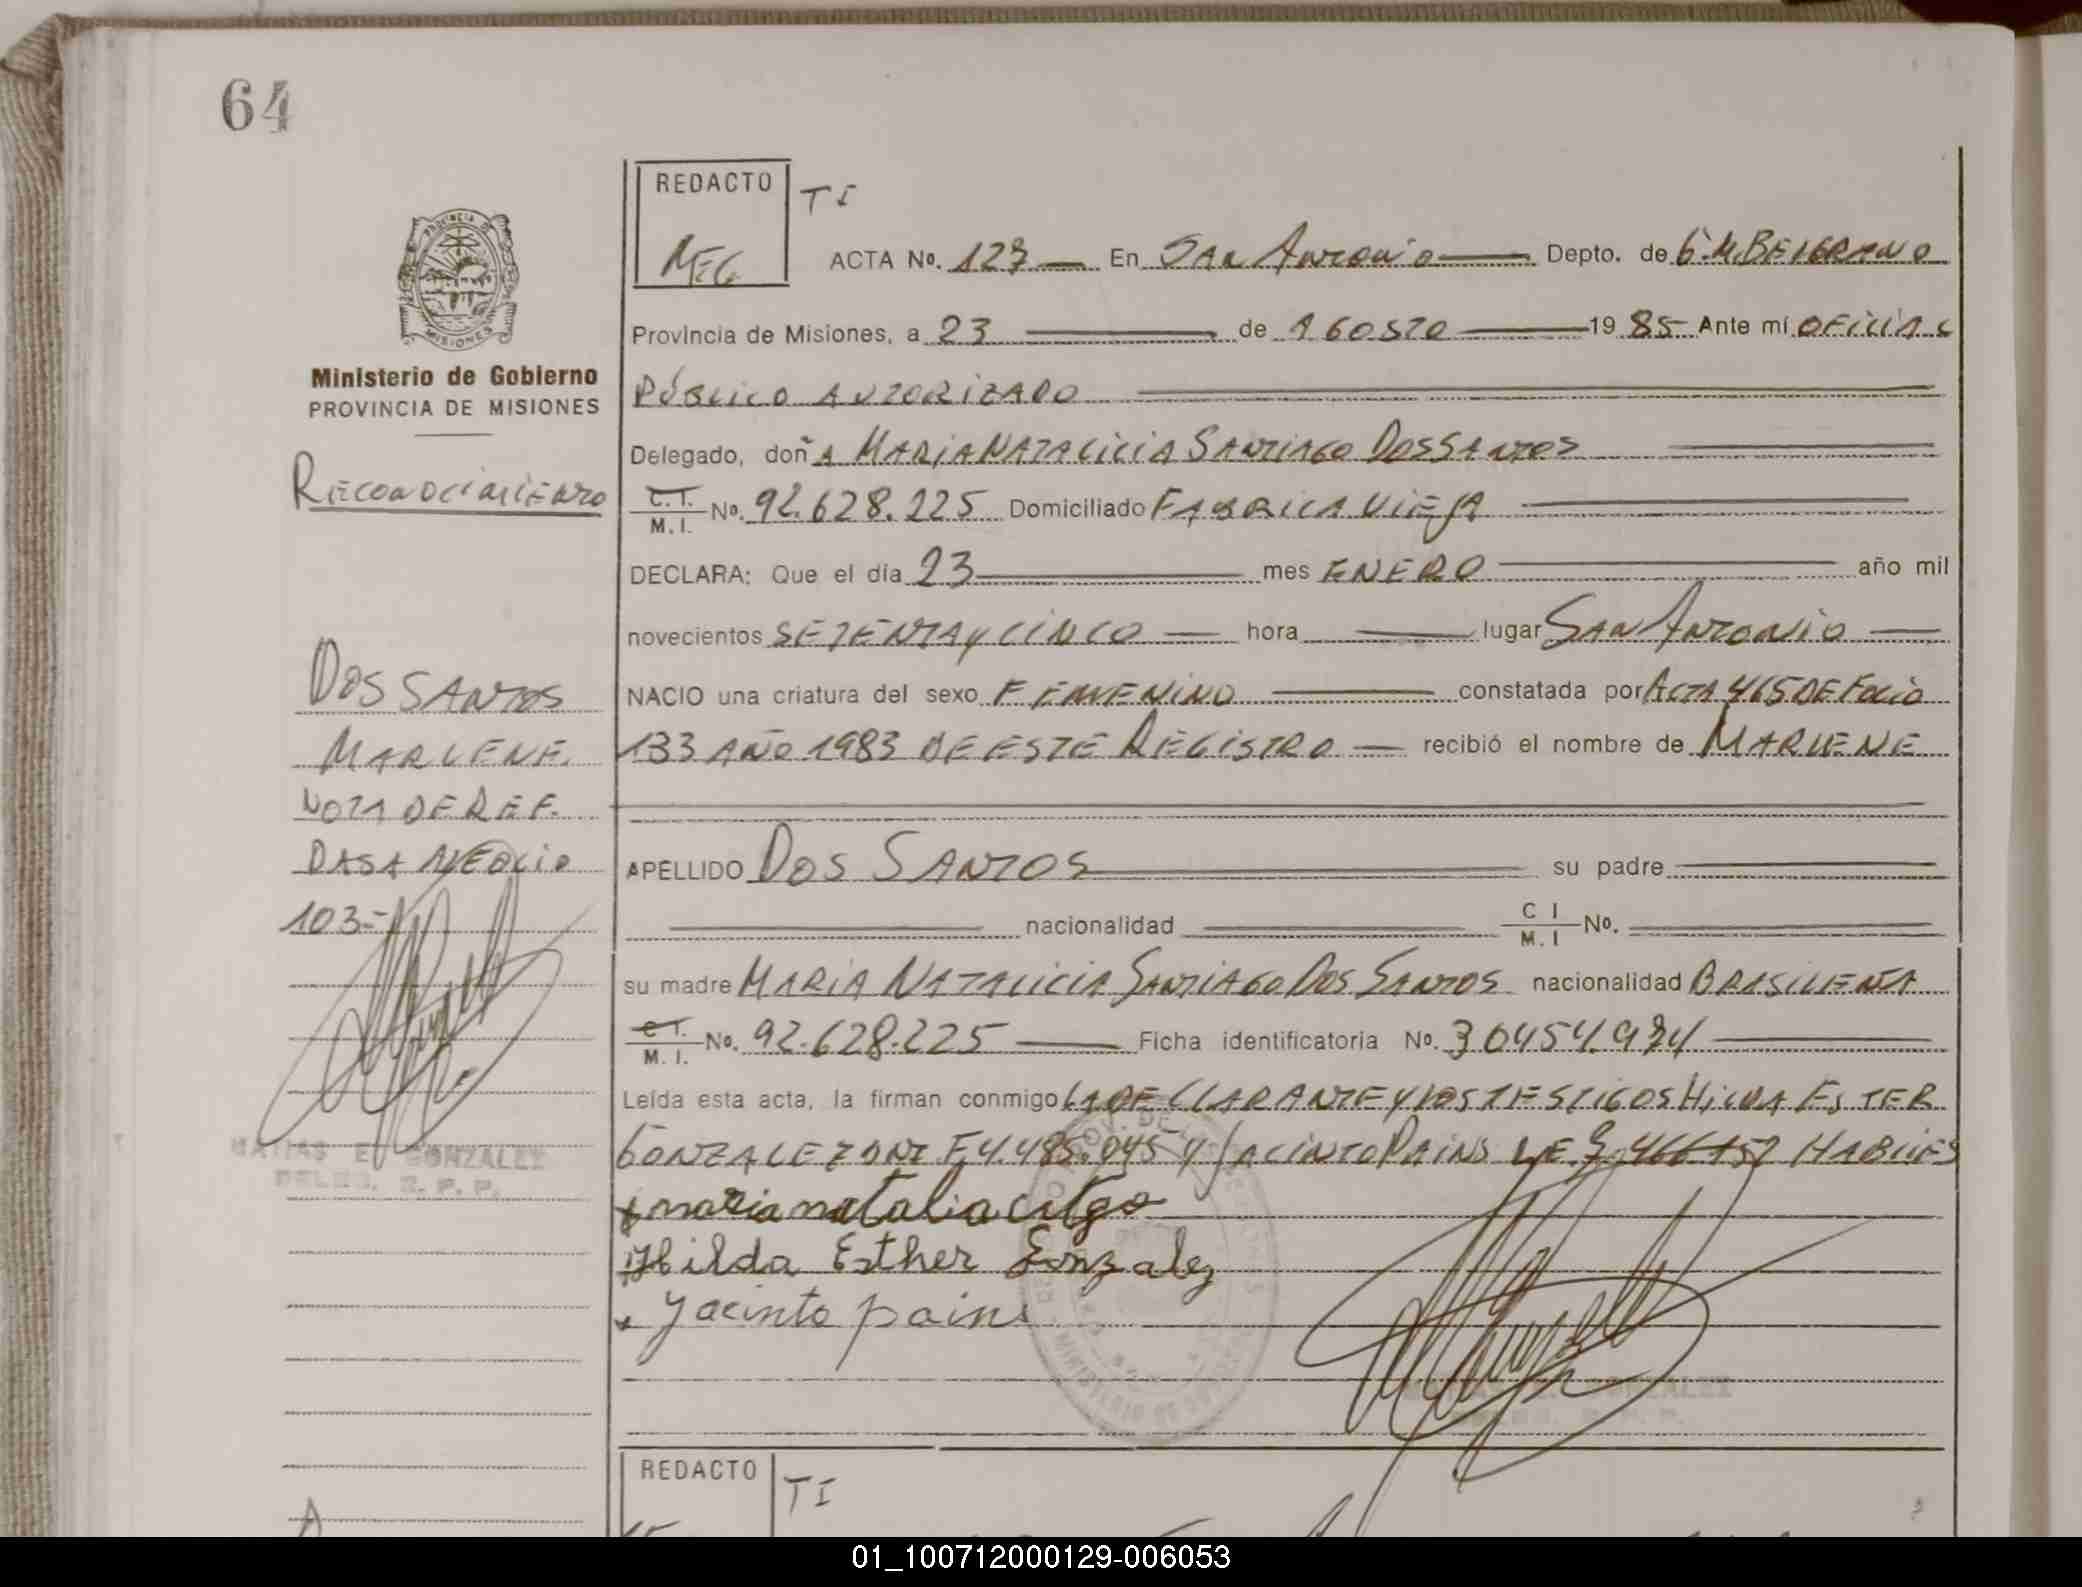 64
REDACTO
TI
MEG
ACTA No. 127 En San Antonio Depto. de G.M. BELGRANO
Provincia de Misiones, a 23 de AGOSTO 1985 Ante mí OFICIAL
PÚBLICO AUTORIZADO
Delegado, doñA MARIA NATALICIA SANTIAGO DOS SANTOS
C.I. M.I. No. 92.628.225 Domiciliado FABRICA VIEJA
DECLARA: Que el día 23 mes ENERO año mil
novecientos SETENTA y CINCO hora lugar SAN ANTONIO
NACIO una criatura del sexo FEMENINO constatada por ACTA 465 DE FOLIO
133 AÑO 1983 DE ESTE REGISTRO recibió el nombre de MARLENE
APELLIDO DOS SANTOS su padre
nacionalidad C I M. I No.
su madre MARIA NATALICIA SANTIAGO DOS SANTOS nacionalidad BRASILEÑA
C.I. M.I. No. 92.628.225 Ficha identificatoria No. 30454.974
Leída esta acta, la firman conmigo LA DECLARANTE Y LOS TESTIGOS HILDA ESTER
GONZALEZ DNI F4.485.945 Y JACINTO PAINS L.E. HABILES
maria natalia
Hilda Esther Gonzalez
Jacinto pains
PROVINCIA DE MISIONES
Ministerio de Gobierno
PROVINCIA DE MISIONES
RECONOCIMIENTO
DOS SANTOS
MARLENE.
NOTA DE REF.
PASA A FOLIO
103-
MATIAS E. GONZALEZ
DELEG. R. P. P.
GONZALEZ
REDACTO
TI
01_100712000129-006053